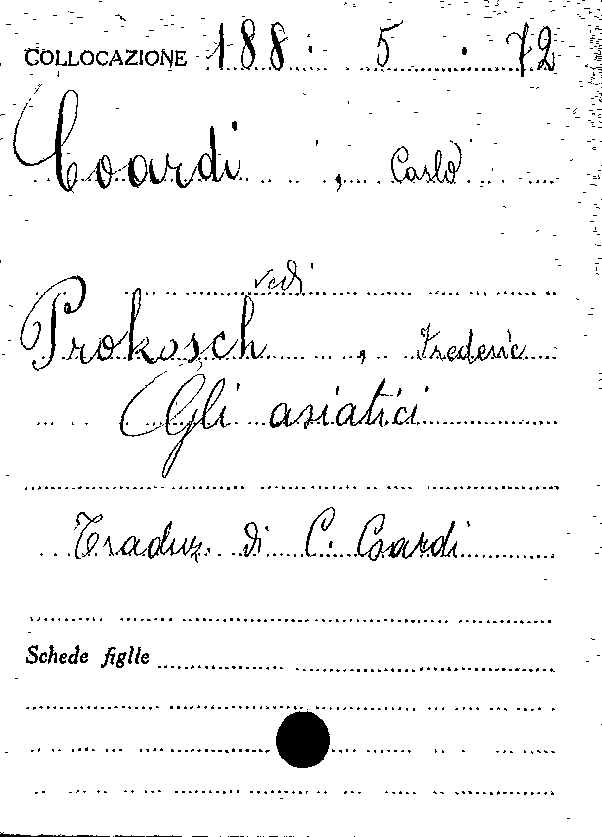 COLLOCAZIONE 188. 5. 72
Coardi, Carlo
vedi
Prokosch, Frederic
Gli asiatici
Traduz. di C. Coardi
Schede figlie